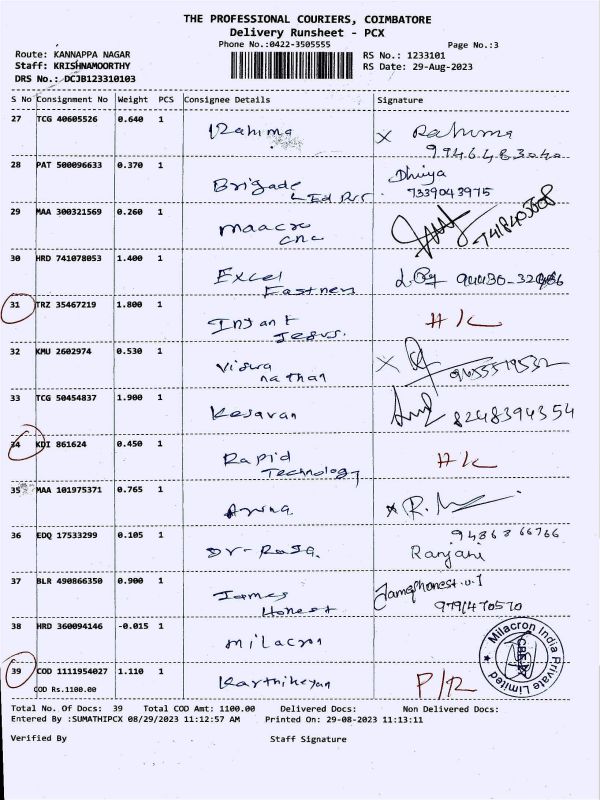 THE PROFESSIONAL COURIERS, COIMBATORE
Delivery Runsheet - PCX
Phone No.:0422-3505555
Page No.:3
Route: KANNAPPA NAGAR
Staff: KRISHNAMOORTHY
DRS No.: DCJB123310103
RS No.: 1233101
RS Date: 29-Aug-2023
S No Consignment No Weight PCS Consignee Details Signature
27 TCG 40605526 0.640 1 Rahima X Rahima
28 PAT 500096633 0.370 1 Brigade Dhivya
7339043975
29 MAA 300321569 0.260 1 maacro
cnc
30 HRD 741078053 1.400 1 Excel
Fastners
31 TRZ 35467219 1.800 1 Infant
Jesus.
32 KMU 2602974 0.530 1 Viswa
nathan X
33 TCG 50454837 1.900 1 Kesavan 8248394354
34 KDI 861624 0.450 1 Rapid
Technology
35 MAA 101975371 0.765 1 Aruna
36 EDQ 17533299 0.105 1 Dr-Raja. Ranjani
37 BLR 490866350 0.900 1 James
Honest
38 HRD 360094146 -0.015 1 milacron Milacron India Private Limited
39 COD 1111954027 1.110 1 Karthikeyan P/R
COD Rs.1100.00
Total No. Of Docs: 39 Total COD Amt: 1100.00 Delivered Docs: Non Delivered Docs:
Entered By :SUMATHIPCX 08/29/2023 11:12:57 AM Printed On: 29-08-2023 11:13:11
Verified By Staff Signature